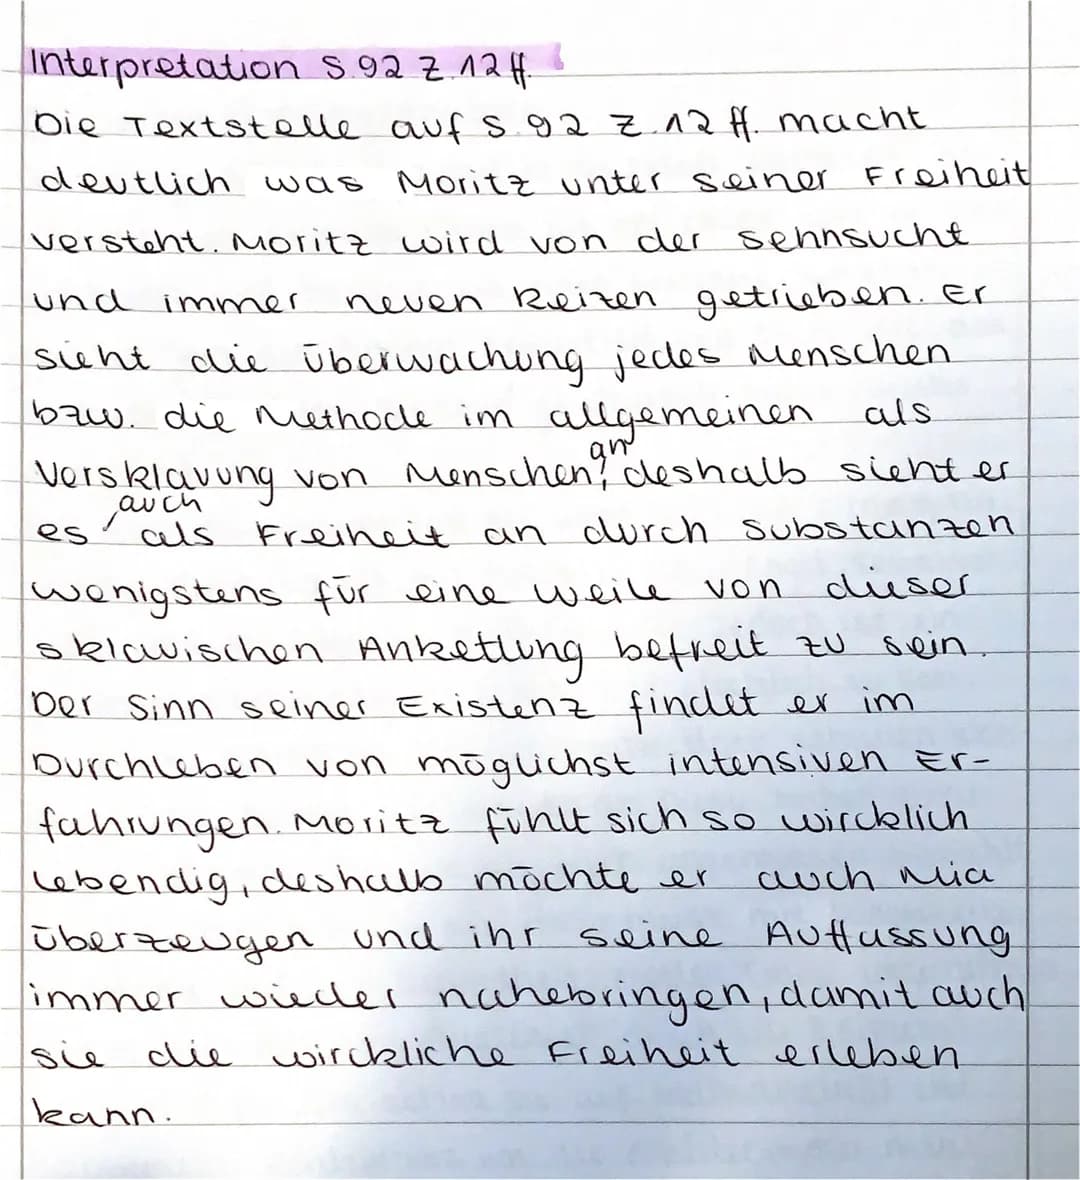 Interpretation S.92 Z.12ff.
Die Textstelle auf S.92 Z.12ff. macht
deutlich was Moritz unter seiner Freiheit
versteht. Moritz wird von der Sehnsucht
und immer neuen Reizen getrieben. Er
sieht die Überwachung jedes Menschen
bzw. die Methode im allgemeinen als
Versklavung von Menschen an, deshalb sieht er
es auch als Freiheit an durch Substanzen
wenigstens für eine weile von dieser
sklavischen Ankettung befreit zu sein.
Der Sinn seiner Existenz findet er im
Durchleben von möglichst intensiven Er-
fahrungen. Moritz fühlt sich so wircklich
lebendig, deshalb möchte er auch Mia
überzeugen und ihr seine Auffassung
immer wieder nahebringen, damit auch
sie die wirckliche Freiheit erleben
kann.